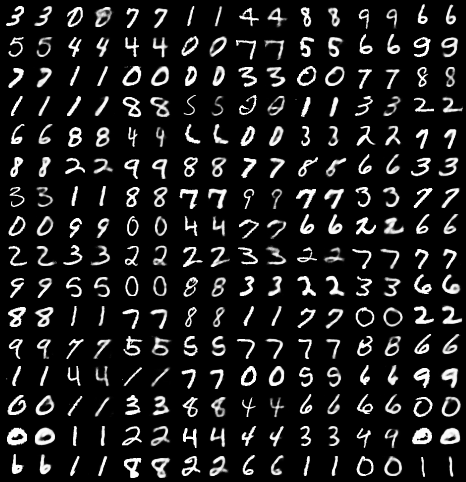 3 3 0 0 7 7 1 1 4 4 8 8 9 9 6 6
5 5 4 4 4 4 0 0 7 7 5 5 6 6 9 9
7 7 1 1 0 0 0 0 3 3 0 0 7 7 8 8
1 1 1 1 8 8 5 5 0 0 1 1 3 3 2 2
6 6 8 8 4 4 6 6 0 0 3 3 2 2 7 7
8 8 2 2 9 9 8 8 7 7 8 8 6 6 3 3
3 3 1 1 8 8 7 7 9 9 7 7 3 3 7 7
0 0 9 9 0 0 4 4 7 7 6 6 2 2 6 6
2 2 3 3 2 2 2 2 3 3 2 2 7 7 7 7
9 9 5 5 0 0 8 8 3 3 2 2 3 3 6 6
8 8 1 1 7 7 8 8 1 1 7 7 0 0 2 2
9 9 7 7 5 5 5 5 7 7 7 7 8 8 6 6
1 1 4 4 1 1 7 7 0 0 5 5 6 6 9 9
0 0 1 1 3 3 8 8 4 4 6 6 6 6 0 0
0 0 1 1 2 2 4 4 4 4 3 3 4 9 0 0
6 6 1 1 8 8 2 2 6 6 1 1 0 0 1 1